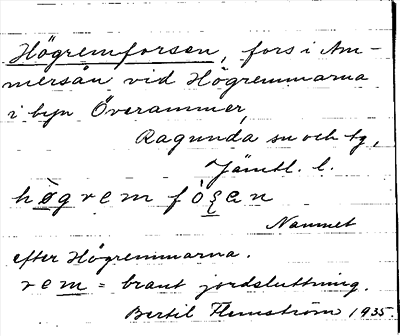 Högremforsen, fors i Am-
mersån vid Högremmarna
i byn Överammer,
Ragunda sn och tg,
Jämtl. l.
høgrem fo̊ṣen
Namnet
efter Högremmarna.
rem = brant jordsluttning.
Bertil Flemström 1935.